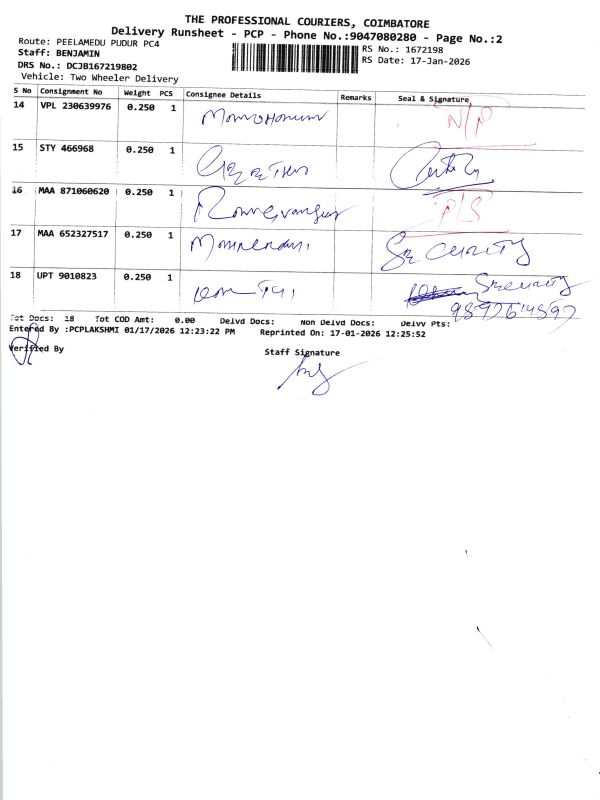 THE PROFESSIONAL COURIERS, COIMBATORE
Delivery Runsheet - PCP - Phone No.:9047080280 - Page No.:2
Route: PEELAMEDU PUDUR PC4
Staff: BENJAMIN
DRS No.: DCJB167219802
Vehicle: Two Wheeler Delivery
RS No.: 1672198
RS Date: 17-Jan-2026
S No Consignment No Weight PCS Consignee Details Remarks Seal & Signature
14 VPL 230639976 0.250 1 N/P
15 STY 466968 0.250 1
16 MAA 871060620 0.250 1 P/S
17 MAA 652327517 0.250 1 SECURITY
18 UPT 9010823 0.250 1 Security
Tot Docs: 18 Tot COD Amt: 0.00 Delvd Docs: Non Delvd Docs: Delvv Pts:
Entered By :PCPLAKSHMI 01/17/2026 12:23:22 PM Reprinted On: 17-01-2026 12:25:52
Verified By
Staff Signature